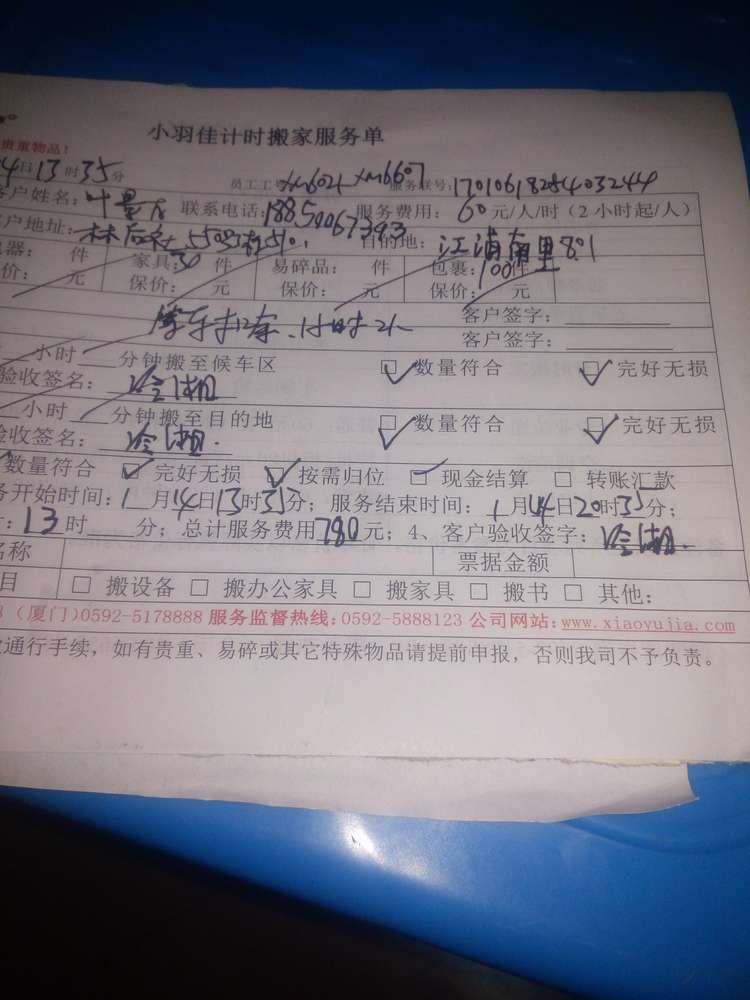 小羽佳计时搬家服务单
贵重物品！
4日13时35分 员工工号:xm6021 xm6607 服务联号:1701061825403244
客户姓名：叶 联系电话:18850067393 服务费用：60元/人/时（2小时起/人）
客户地址： 林后社550号 510 目的地：江浦南里801
器： 件 家具：30件 易碎品： 件 包裹：100件
价： 元 保价： 元 保价： 元 保价： 元
客户签字：
小时 客户签字：
小时 分钟搬至候车区 数量符合 完好无损
验收签名：
小时 分钟搬至目的地 数量符合 完好无损
验收签名：
数量符合 完好无损 按需归位 现金结算 转账汇款
务开始时间：1月14日13时35分；服务结束时间：1月14日20时35分；
：13时 分；总计服务费用780元；4、客户验收签字：
名称 票据金额
目 搬设备 搬办公家具 搬家具 搬书 其他：
8（厦门)0592-5178888 服务监督热线:0592-5888123 公司网站:www.xiaoyujia.com
通行手续，如有贵重、易碎或其它特殊物品请提前申报，否则我司不予负责。